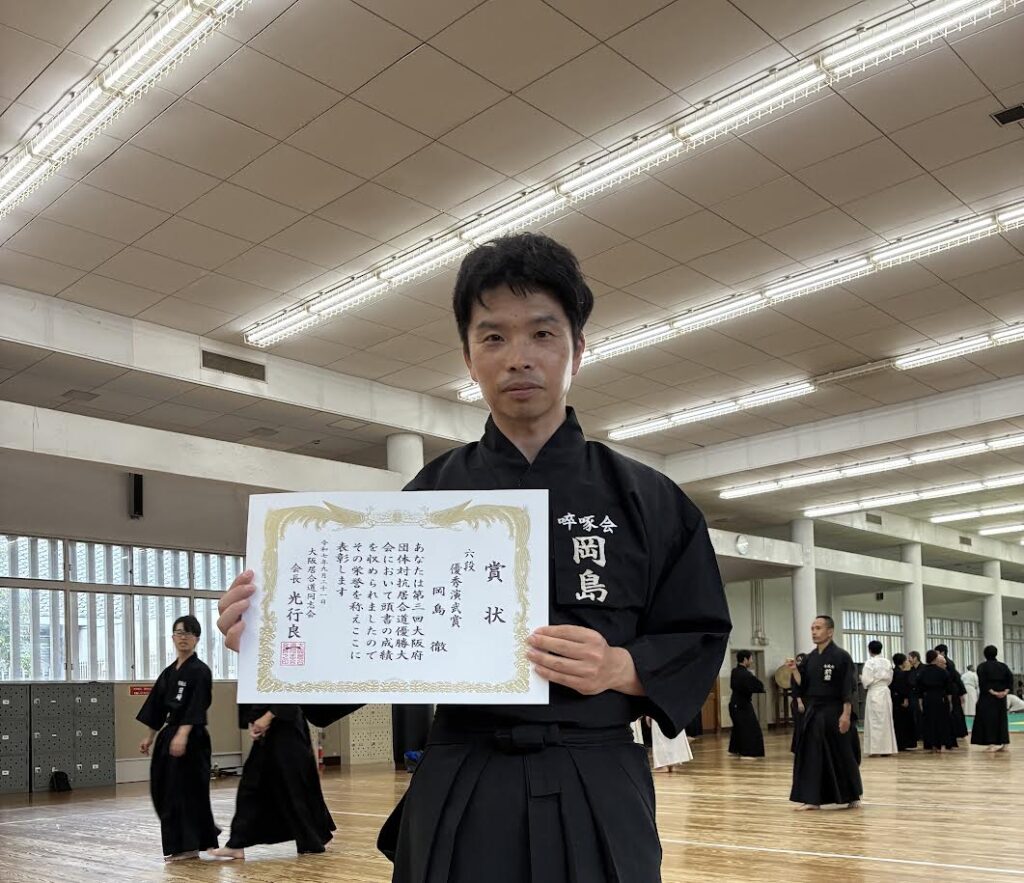 賞状
六段
優秀演武賞
岡島 徹
あなたは第三回大阪府
団体対抗居合道優勝大
会において頭書の成績
を収められましたので
その栄誉を称えここに
表彰します
令和七年九月二十一日
大阪居合道同志会
会長 光行良
啐啄会
岡島